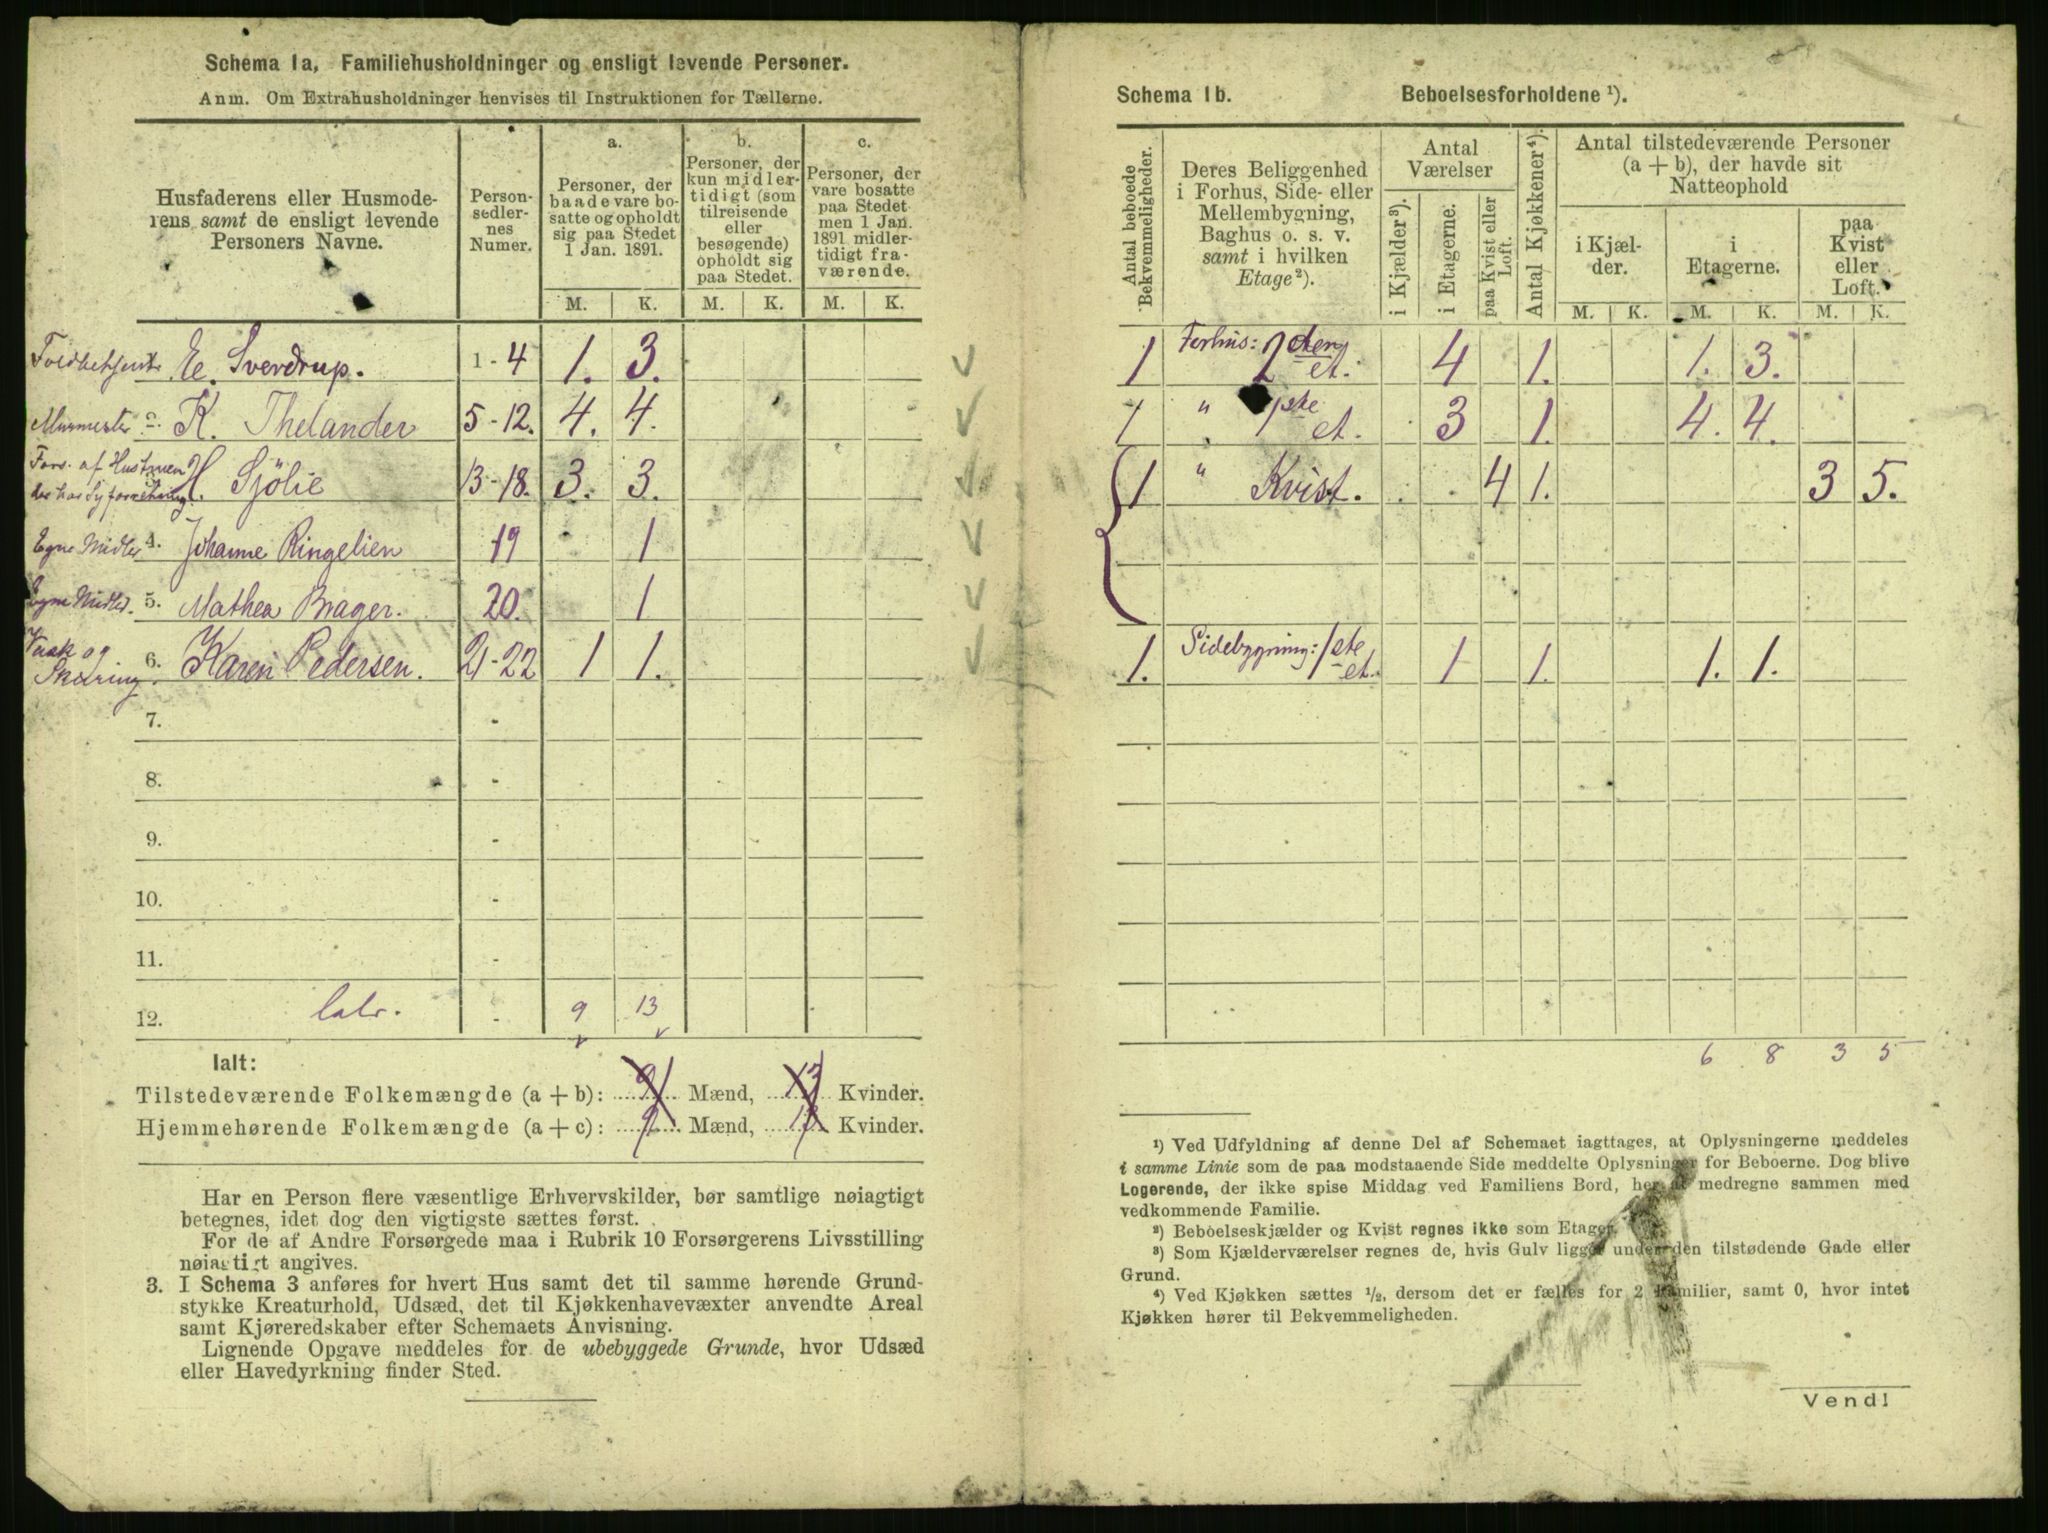 Schema 1a, Familiehusholdninger og ensligt levende Personer.
Anm. Om Extrahusholdninger henvises til Instruktionen for Tællerne.
Husfaderens eller Husmode-
rens samt de ensligt levende
Personers Navne.
Person-
sedler-
nes
Numer.
a.
Personer, der
baade vare bo-
satte og opholdt
sig paa Stedet
1 Jan. 1891.
b.
Personer, der
kun midler-
tidigt (som
tilreisende
eller
besøgende)
opholdt sig
paa Stedet.
c.
Personer, der
vare bosatte
paa Stedet
men 1 Jan.
1891 midler-
tidigt fra-
værende.
M. K. M. K. M. K.
Toldbetjent E. Sverdrup. 1-4 1. 3.
Murmester K. Thelander 5-12. 4. 4.
Fors. af
H. Sjölie 13-18. 3. 3.
Egne Midler 4. Johanne Ringelien 19 1
Egne Midler. 5. Mathea Brager. 20. 1
Vask og
Skuring. 6. Karen Pedersen. 21-22 1 1.
7. -
8. -
9. -
10. -
11. -
12. - 9 13
Ialt:
Tilstedeværende Folkemængde (a + b): 9 Mænd, 13 Kvinder.
Hjemmehørende Folkemængde (a + c): 9 Mænd, 13 Kvinder.
Har en Person flere væsentlige Erhvervskilder, bør samtlige nøiagtigt
betegnes, idet dog den vigtigste sættes først.
For de af Andre Forsørgede maa i Rubrik 10 Forsørgerens Livsstilling
nøiagtigt angives.
3. I Schema 3 anføres for hvert Hus samt det til samme hørende Grund-
stykke Kreaturhold, Udsæd, det til Kjøkkenhavevæxter anvendte Areal
samt Kjøreredskaber efter Schemaets Anvisning.
Lignende Opgave meddeles for de ubebyggede Grunde, hvor Udsæd
eller Havedyrkning finder Sted.
Schema 1b. Beboelsesforholdene ¹).
Antal beboede
Bekvemmeligheder.
Deres Beliggenhed
i Forhus, Side- eller
Mellembygning,
Baghus o. s. v.
samt i hvilken
Etage ²).
Antal
Værelser
i Kjælder ³).
i Etagerne.
paa Kvist eller
Loft.
Antal Kjøkkener ⁴).
Antal tilstedeværende Personer
(a + b), der havde sit
Natteophold
i Kjæl-
der.
i
Etagerne.
paa
Kvist
eller
Loft.
M. K. M. K. M. K.
1 Forhus: 2den et. 4 1. 1. 3.
1 " 1ste et. 3 1. 4. 4.
1 " Kvist. 4 1. 3 5.
1. Sidebygning: 1ste et. 1 1. 1. 1.
6 8 3 5
¹) Ved Udfyldning af denne Del af Schemaet iagttages, at Oplysningerne meddeles
i samme Linie som de paa modstaaende Side meddelte Oplysninger for Beboerne. Dog blive
Logerende, der ikke spise Middag ved Familiens Bord, her at medregne sammen med
vedkommende Familie.
²) Beboelseskjælder og Kvist regnes ikke som Etager.
³) Som Kjælderværelser regnes de, hvis Gulv ligger under den tilstødende Gade eller
Grund.
⁴) Ved Kjøkken sættes ½, dersom det er fælles for 2 Familier, samt 0, hvor intet
Kjøkken hører til Bekvemmeligheden.
Vend!